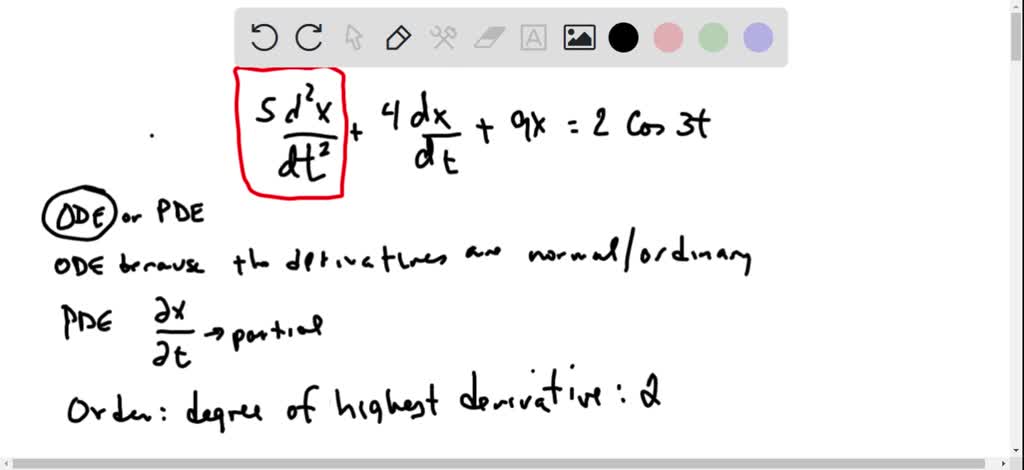 5 d²x/dt² + 4 dx/dt + 9x = 2 Cos 3t
ODE or PDE
ODE because the derivatives are normal/ordinary
PDE ∂x/∂t → partial
Order: degree of highest derivative: 2